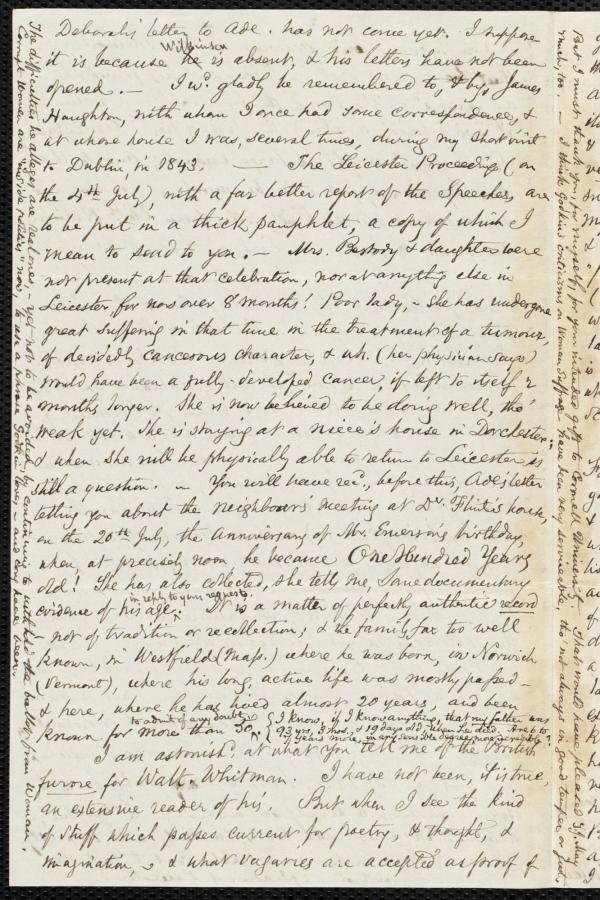 Deborah's letter to Ade. has not come yet. I suppose
it is because he is absent, & his letters have not been
Wilkinson
opened. — I wd. gladly be remembered to, & by, James
Haughton, with whom I once had some correspondence, &
at whose house I was, several times, during my short visit
to Dublin, in 1843. — The Leicester Proceedings (on
the 4th July), with a far better report of the Speeches, are
to be put in a thick pamphlet, a copy of which I
mean to send to you. — Mrs. & daughter were
not present at that celebration, nor at anything else in
Leicester, for now over 8 months! Poor lady, - she has undergone
great suffering in that time in the treatment of a tumour,
of decidedly cancerous character, & wh. (her physician says)
would have been a fully-developed cancer, if left to itself 2
months longer. She is now believed to be doing well, tho'
weak yet. She is staying at a niece's house in Dorchester;
& when she will be physically able to return to Leicester is
still a question. — You will have recd., before this, Ade's letter
telling you about the neighbours' meeting at Dr. Flint's house,
on the 20th July, the anniversary of Mr. Emerson's birthday,
when, at precisely noon, he became One Hundred Years
old! She has also collected, she tell me, some documentary
evidence of his age. It is a matter of perfectly authentic record
in reply to your request.
— not of tradition or recollection; & the family far too well
known, in Westfield (Mass.) where he was born, in Norwich
(Vermont), where his long, active life was mostly passed —
& here, where he has lived almost 20 years, and been
known for more than 50,
to admit of any doubt.
I know, if I know anything, that my father was
93 yrs, 3 mos. & 19 days old, when he died. Are to
7 years more, in any sensible degree, more incredible?
I am astonishd. at what you tell me of the British
furore for Walt. Whitman. I have not been, it is true,
an extensive reader of his. But when I see the kind
of stuff which passes current for poetry, & thought, &
imagination, & what vagaries are accepted as proof of
The difficulties he alleges are real ones, - yet not to be avoided by continuing to withhold the ballot from Woman.
Corrupt Women are "inside politics" now, to use a phrase Godkin loves - and long have been.
But I must thank you for myself, for your intended gift to Cornell University. That would have pleased S. J. May
much, too. — I think Godkin's criticisms on Woman Suffrage have been very serviceable, tho' not always in good temper or just.